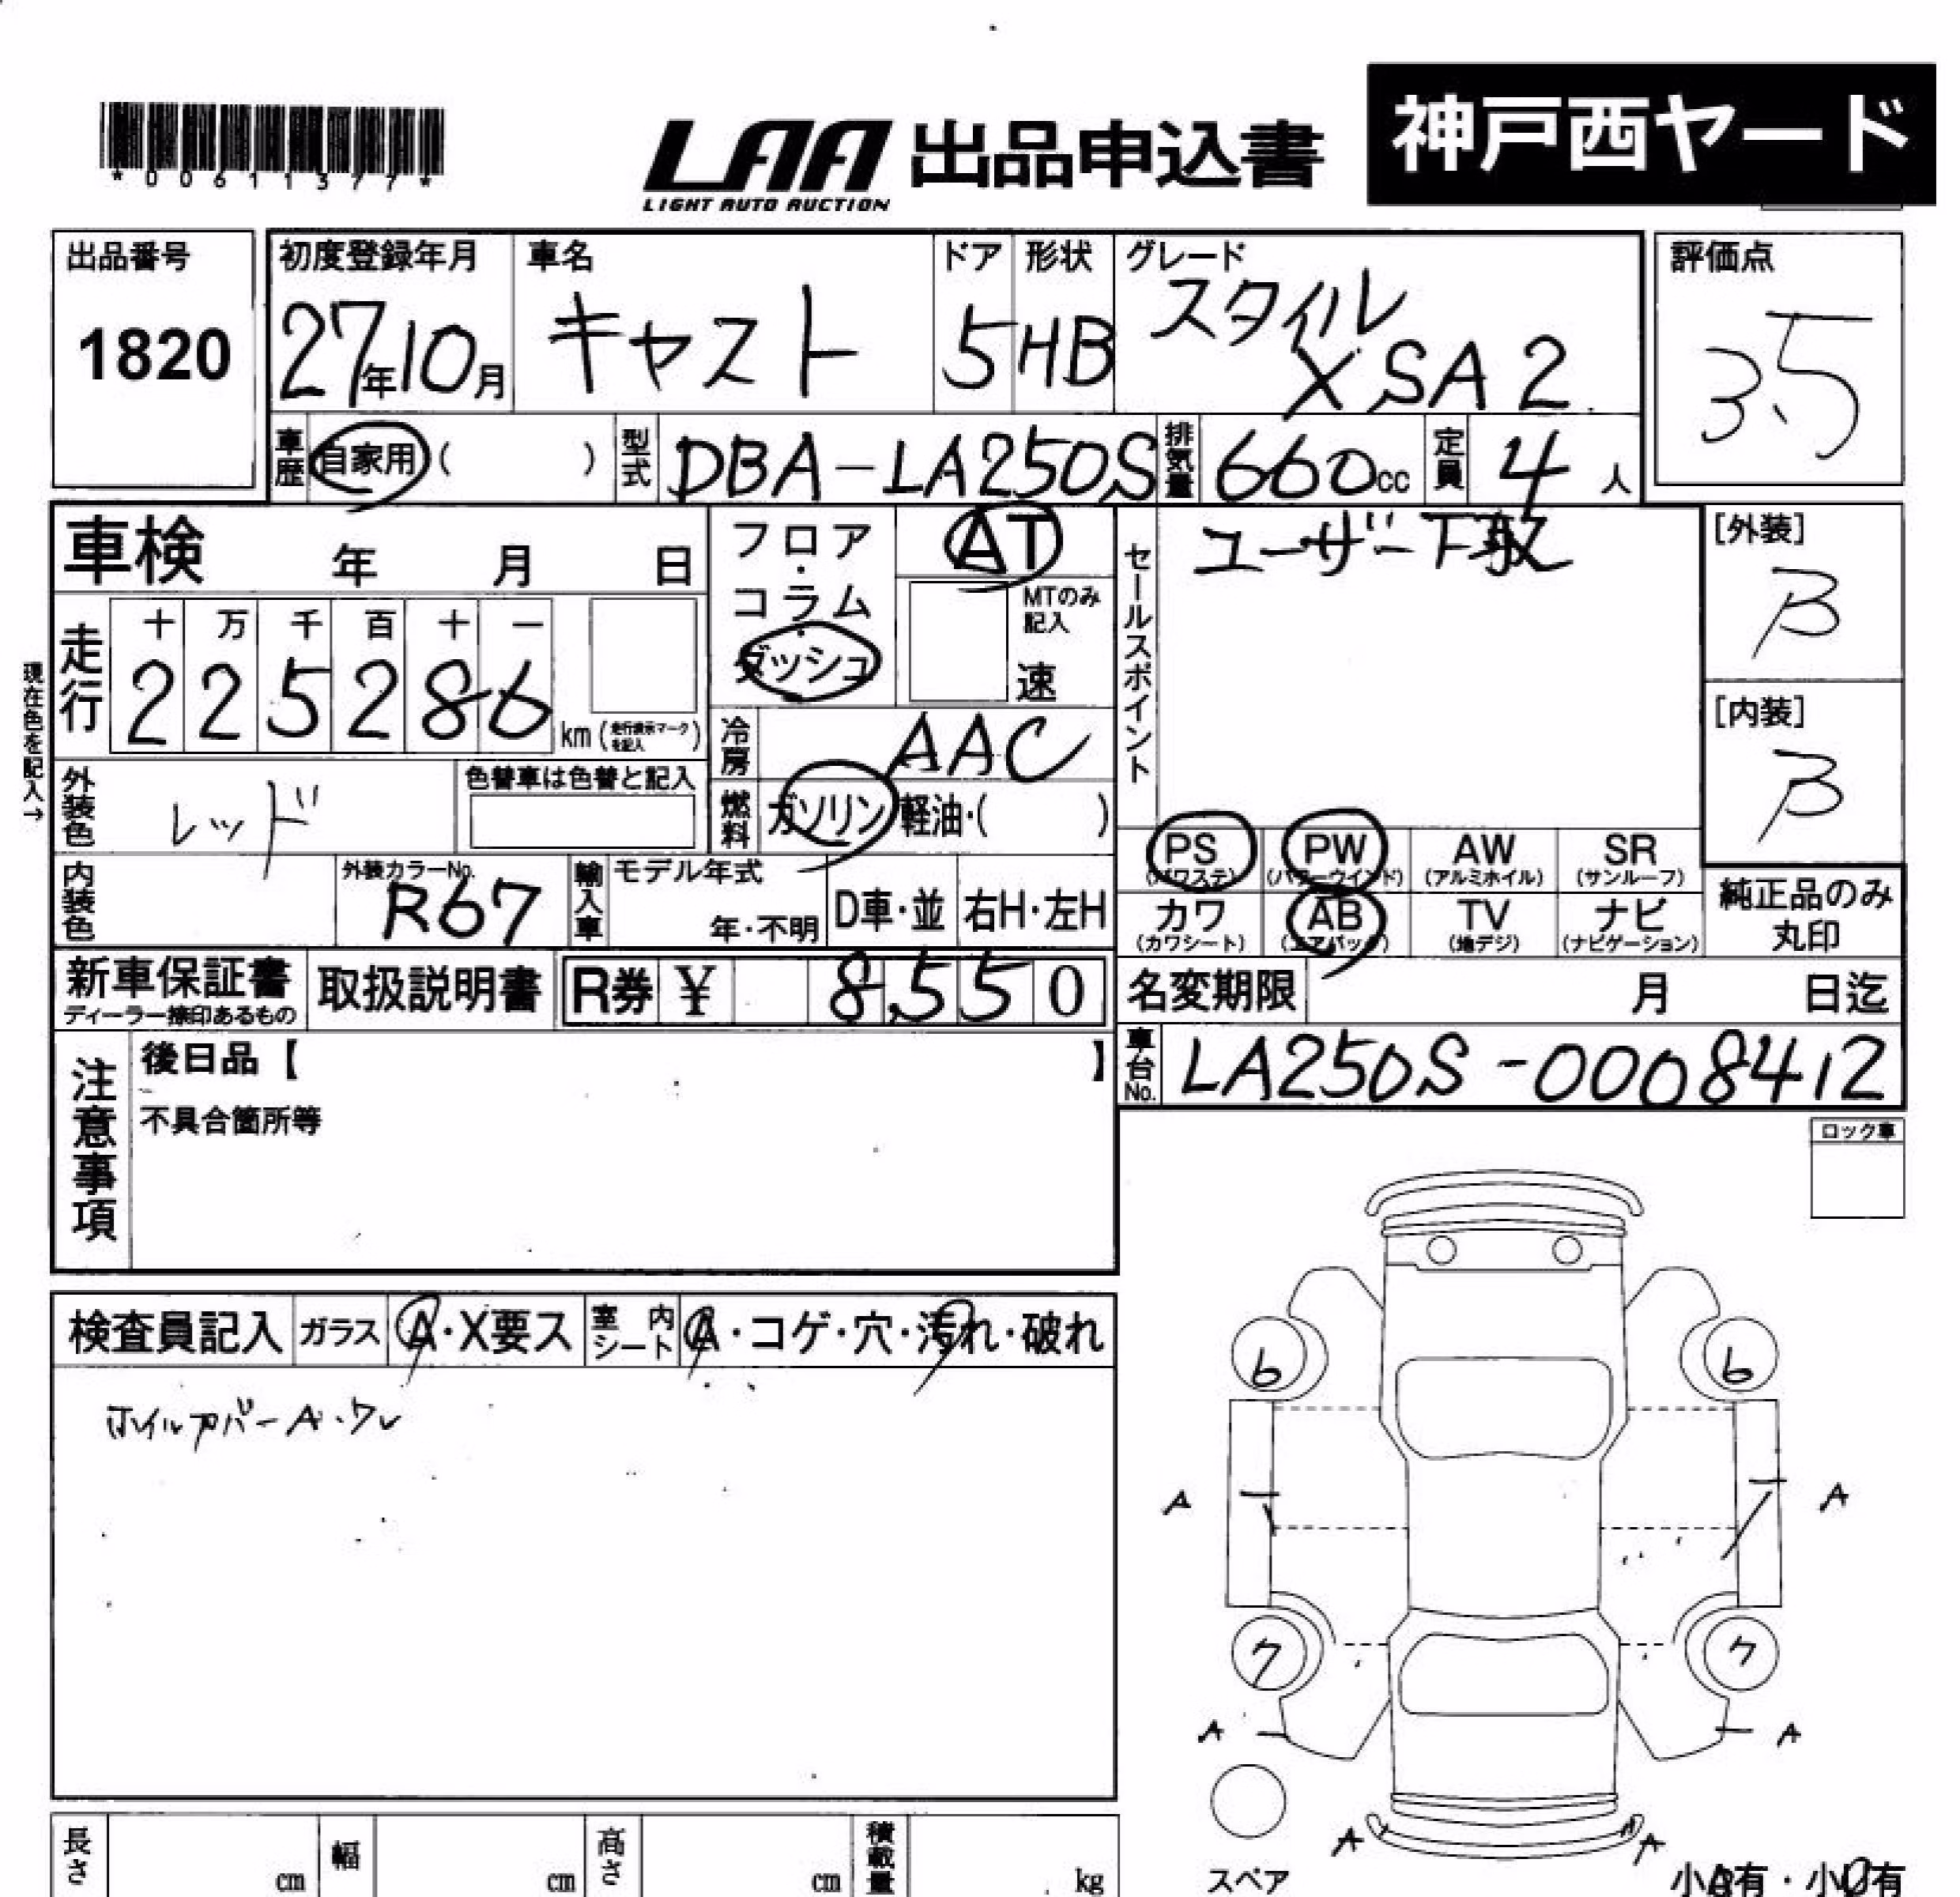 *00611377*
LAA 出品申込書
LIGHT AUTO AUCTION
神戸西ヤード
出品番号
1820
初度登録年月
27年10月
車名
キャスト
ドア
5
形状
HB
グレード
スタイル
X SA2
評価点
3.5
車歴
自家用( )
型式
DBA-LA250S
排気量
660cc
定員
4人
車検 年 月 日
フロア・コラム・ダッシュ
AT
MTのみ記入
速
セールスポイント
ユーザー下取
[外装]
B
[内装]
B
現在色を記入→
走行
十 万 千 百 十 一
2 2 5 2 8 6
km(走行表示マークを記入)
冷房
AAC
燃料
ガソリン 軽油・( )
外装色
レッド
色替車は色替と記入
内装色
外装カラーNo.
R67
輸入車
モデル年式
年・不明
D車・並
右H・左H
PS
(パワステ)
PW
(パワーウインド)
AW
(アルミホイル)
SR
(サンルーフ)
カワ
(カワシート)
AB
(エアバッグ)
TV
(地デジ)
ナビ
(ナビゲーション)
純正品のみ
丸印
新車保証書
ディーラー捺印あるもの
取扱説明書
R券 ¥ 8,550
名変期限 月 日迄
車台No.
LA250S-0008412
注意事項
後日品【 】
不具合箇所等
ロック車
検査員記入
ガラス
A・X要ス
室内シート
A・コゲ・穴・汚れ・破れ
ホイルカバーA・ワレ
6 6
A A
7 7
A A
A A
スペア
小A有・小U有
長さ cm
幅 cm
高さ cm
積載量 kg